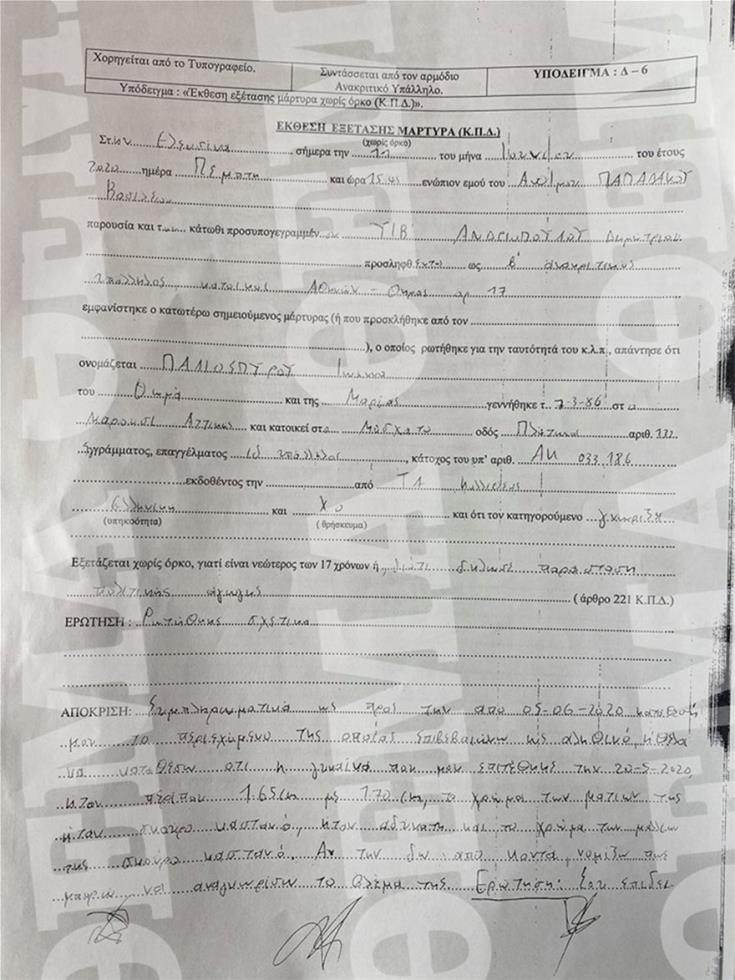 Χορηγείται από το Τυπογραφείο.
Συντάσσεται από τον αρμόδιο
Ανακριτικό Υπάλληλο.
ΥΠΟΔΕΙΓΜΑ : Δ – 6
Υπόδειγμα : «Έκθεση εξέτασης μάρτυρα χωρίς όρκο (Κ.Π.Δ.)».
ΕΚΘΕΣΗ ΕΞΕΤΑΣΗΣ ΜΑΡΤΥΡΑ (Κ.Π.Δ.)
(χωρίς όρκο)
Στ.ην Ελευσίνα σήμερα την 11 του μήνα Ιουνίου του έτους
2020 ημέρα Πέμπτη και ώρα 15.45 ενώπιον εμού του ΠΑΠΑΔΑΚΟΥ
Βασιλείου
παρουσία και κάτωθι προσυπογεγραμμέν Υ/Β΄ Δημητρίου
προσληφθ ως β΄ ανακριτικός
υπάλληλος κατοίκου Αθηνών – αρ 17
εμφανίστηκε ο κατωτέρω σημειούμενος μάρτυρας (ή που προσκλήθηκε από τον
), ο οποίος ρωτήθηκε για την ταυτότητά του κ.λ.π., απάντησε ότι
ονομάζεται ΠΑΛΙΟΣΠΥΡΟΥ Ιωάννα
του Θωμά και της Μαρίας γεννήθηκε τ. 7-3-86 στο
Μαρούσι Αττικής και κατοικεί στο Μοσχάτο οδός αριθ.
γράμματος, επαγγέλματος ιδ υπάλληλος , κάτοχος του υπ' αριθ. ΑΚ 033186
εκδοθέντος την από ΤΑ Καλλιθέας
Ελληνική και Χο και ότι τον κατηγορούμενο γνωρίζω
(υπηκοότητα) (θρήσκευμα)
Εξετάζεται χωρίς όρκο, γιατί είναι νεώτερος των 17 χρόνων ή διότι δήλωσε παράσταση
πολιτικής αγωγής (άρθρο 221 Κ.Π.Δ.)
ΕΡΩΤΗΣΗ : Ρωτήθηκε σχετικά
ΑΠΟΚΡΙΣΗ: Συμπληρωματικά ως προς την από 05-06-2020 κατάθεσή
μου το περιεχόμενο της οποίας επιβεβαιώνω ως αληθινό, ήθελα
να καταθέσω οτι η γυναίκα που μου επιτέθηκε την 20-5-2020,
ήταν περίπου 1.65cm με 1.70cm, το χρώμα των ματιών της
ήταν σκούρο καστανό, ήταν αδύνατη και το χρώμα των μαλιών
της σκούρο καστανό, Αν την δω από κοντά, νομίζω πως
μπορώ να αναγνωρίσω το βλέμμα της. Ερώτηση: Σου επιδει